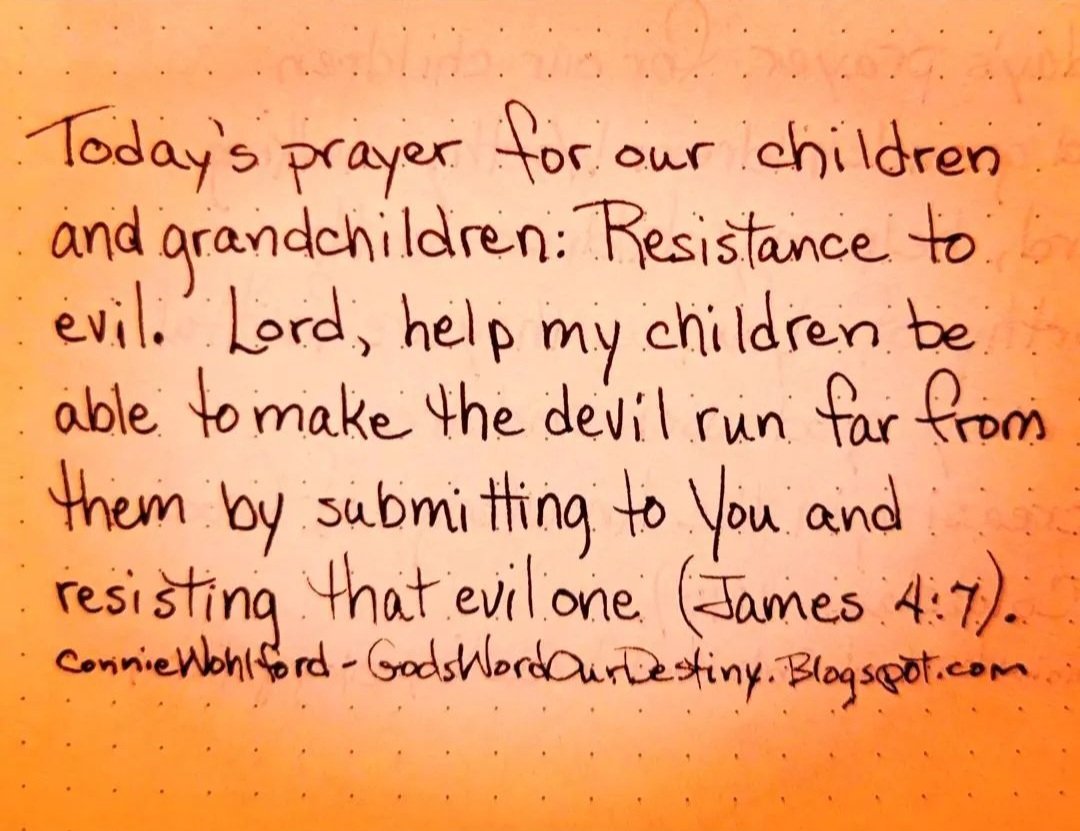 Today's prayer for our children
and grandchildren: Resistance to
evil. Lord, help my children be
able to make the devil run far from
them by submitting to You and
resisting that evil one (James 4:7).
Connie Wohlford - GodsWordOurDestiny.Blogspot.com